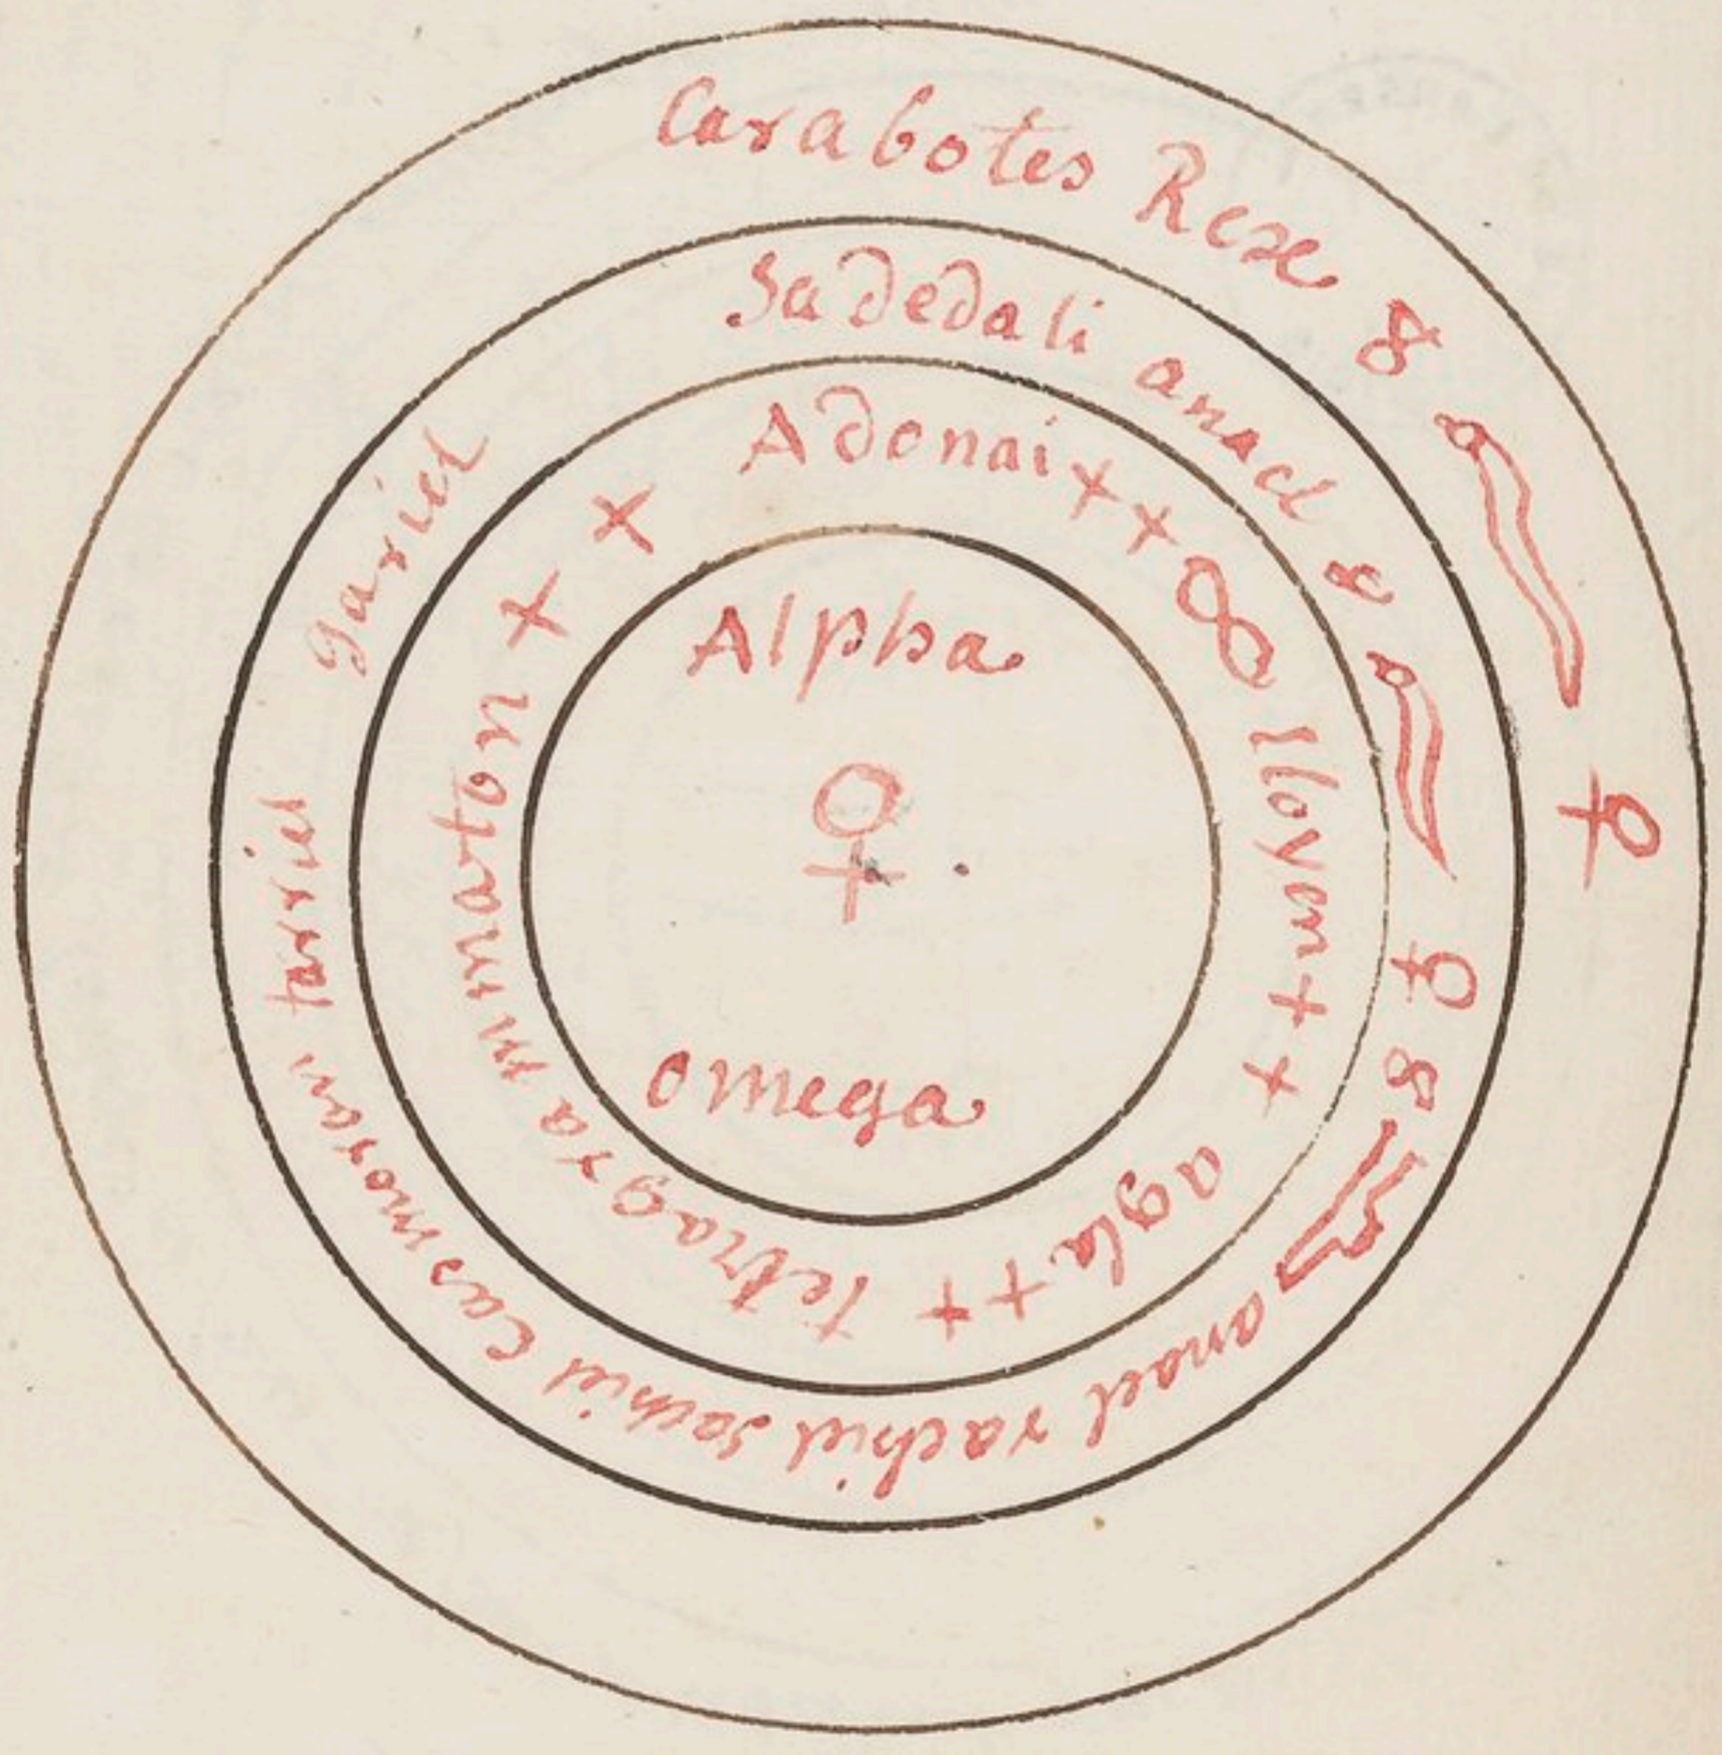 Carabotes Rex 8 ♀
Sadedali anael 8 ♀ 8 anael rachiel sachiel Casmoran tariel gariel
Adonai + + 8 lloyem + + agla + + tetragrammaton + +
Alpha
♀
omega